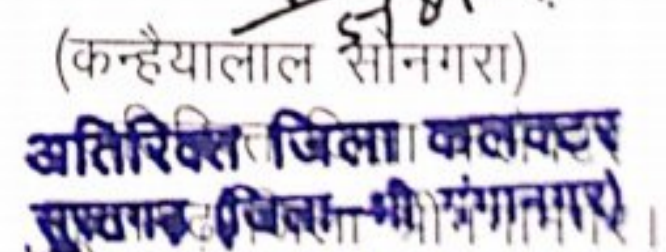 (कन्हैयालाल सोनगरा)
अतिरिक्त जिला कलक्टर
सूरतगढ़ (जिला-श्री गंगानगर)